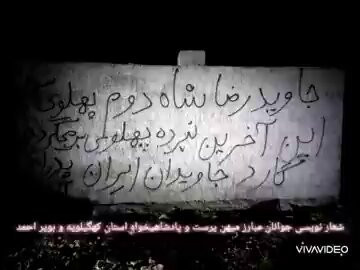 جاوید رضا شاه دوم پهلوی
این آخرین نبرده پهلوی برمیگرده
گارد جاویدان ایران
شعار نویسی جوانان مبارز میهن پرست و پادشاهیخواه استان کهگیلویه و بویر احمد
VIVAVIDEO